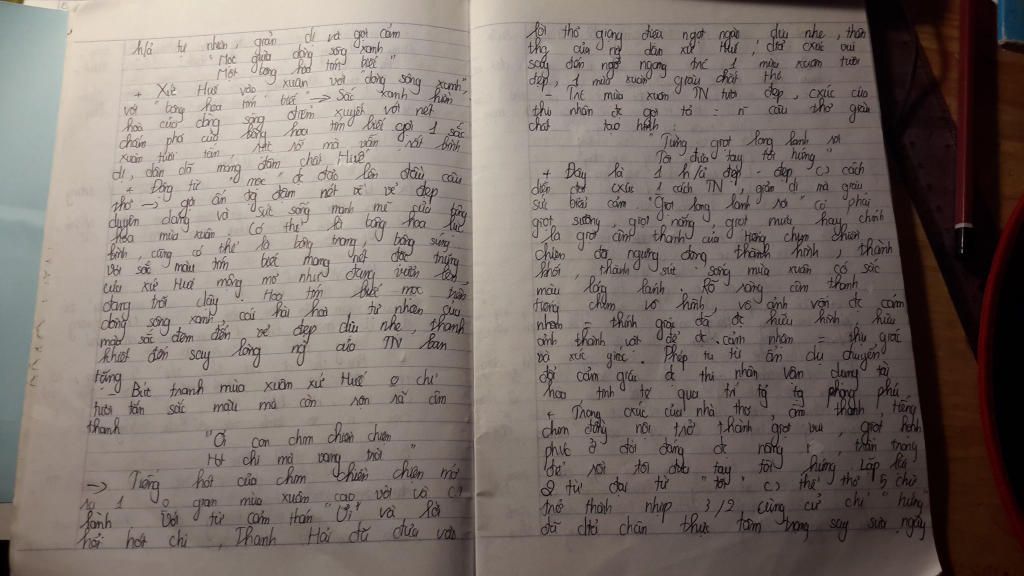 h/ả tự nhiên, giản dị và gợi cảm
"Mọc giữa dòng sông xanh
Một bông hoa tím biếc"
+ Xứ Huế vào xuân với "dòng sông xanh",
với "bông hoa tím biếc" → Sắc xanh hiền
hoà của dòng sông điểm xuyết với nét
chấm phá của bông hoa tím biếc gợi 1 sắc
xuân tươi tắn, rực rỡ mà vẫn rất bình
dị, dân dã mang đậm chất Huế
+ Động từ "mọc" đc đảo lên đầu câu
thơ → gợi ấn tg đậm nét về vẻ đẹp
duyên dáng và sức sống mạnh mẽ của bông
hoa mùa xuân. Có thể là bông hoa lục
bình, cũng có thể là bông trang, bông súng
với sắc màu tím biếc mang nét đặc trưng
của xứ Huế mộng mơ như đang vươn lên,
đang trỗi dậy. Hoa tím biếc mọc trên
dòng sông xanh, cái hài hoà tự nhiên của
màu sắc đem đến vẻ đẹp dịu nhẹ, thanh
khiết đến say lòng ng của TN ban
tặng
- Bức tranh mùa xuân xứ Huế o chỉ
tươi tắn sắc màu mà còn rộn rã âm
thanh
"Ơi con chim chiền chiện
Hót chi mà vang trời"
→ Tiếng hót của chim chiền chiện mở
ra 1 o gian mùa xuân cao vời và
lành. Với từ cảm thán "Ơi" và lời
hỏi hót chi, Thanh Hải đã đưa vào
lời thơ giọng điệu ngọt ngào dịu nhẹ, thân
thg của ng dân xứ Huế, đó cxúc vui
say đến ngỡ ngàng trc 1 mùa xuân tươi
đẹp, 1 mùa xuân giàu chất thơ
- Trc mùa xuân TN tươi đẹp, cxúc của
thi nhân đc gợi tả = n câu thơ giàu
chất tạo hình:
"Từng giọt long lanh rơi
Tôi đưa tay tôi hứng"
+ Đây là 1 h/ả đẹp, đẹp cách
diễn đạt cxúc 1 cách TN, giản dị mà giàu
sức biểu cảm. "Giọt long lanh rơi" có phải
giọt sương, giọt nắng, giọt mưa hay chính
là giọt âm thanh của tiếng chim chiền
chiện đã ngưng đọng thành hình, thành
khối, thành sức sống mùa xuân có sắc
màu lóng lánh. Rõ ràng âm thanh
tiếng chim vô hình, vô ảnh vốn đc cảm
nhận = thính giác đã đc hữu hình hữu
ảnh thành vật để đc cảm nhận = thị giác
và xúc giác. Phép tu từ ẩn dụ chuyển
đổi cảm giác đc thi nhân vận dụng tài
hoa tinh tế qua trí tg tg phong phú
+ Trong cxúc của nhà thơ, âm thanh, tiếng
chim đồng nội trở thành giọt vui, giọt hạnh
phúc ở đời đáng đc nâng niu, trân trọng
để rồi tôi đưa tay tôi hứng. Lặp lại
2 từ đại từ "tôi" thể thơ 5 chữ
trở thành nhịp 3/2 cùng cử chỉ "hứng"
đã dtả chân thực tâm trạng say sưa ngây